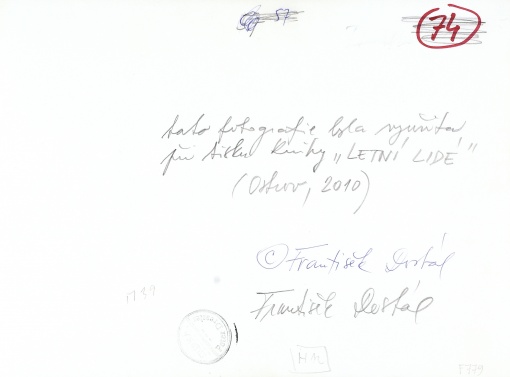 57
74
tato fotografie byla využita
při tisku knihy „LETNÍ LIDÉ"
(Ostrov, 2010)
© František Dostál
František Dostál